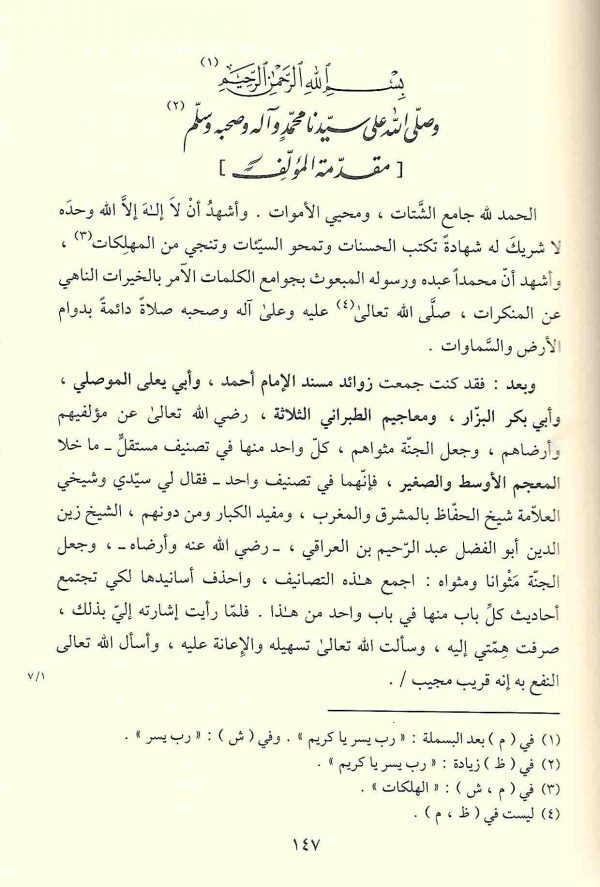 بِسْمِ اللهِ الرَّحْمٰنِ الرَّحِيْمِ (١)
وصلّى الله على سيّدنا محمّد وآله وصحبه وسلّم (٢)
[ مقدّمة المؤلّف ]
الحمد لله جامع الشَّتات ، ومحيي الأموات . وأشهدُ أنْ لاَ إلـٰهَ إلاَّ الله وحدَه
لا شريكَ له شهادةً تكتب الحسنات وتمحو السيّئات وتنجي من المهلِكات(٣) ،
وأشهد أنّ محمداً عبده ورسوله المبعوث بجوامع الكلمات الآمر بالخيرات الناهي
عن المنكرات ، صلَّى الله تعالىٰ(٤) عليه وعلىٰ آله وصحبه صلاةً دائمةً بدوام
الأرض والسَّماوات .
وبعد : فقد كنت جمعت زوائد مسند الإمام أحمد ، وأبي يعلى الموصلي ،
وأبي بكر البزّار ، ومعاجيم الطبراني الثلاثة ، رضي الله تعالىٰ عن مؤلفيهم
وأرضاهم ، وجعل الجنّة مثواهم ، كلّ واحد منها في تصنيف مستقلٍّ ـ ما خلا
المعجم الأوسط والصغير ، فإنّهما في تصنيف واحد ـ فقال لي سيّدي وشيخي
العلاّمة شيخ الحفّاظ بالمشرق والمغرب ، ومفيد الكبار ومن دونهم ، الشيخ زين
الدين أبو الفضل عبد الرّحيم بن العراقي ، ـ رضي الله عنه وأرضاه ـ ، وجعل
الجنّة مَثْوانا ومثواه : اجمع هـٰذه التصانيف ، واحذف أسانيدها لكي تجتمع
أحاديث كلِّ باب منها في باب واحد من هـٰذا . فلمّا رأيت إشارته إليّ بذلك ،
صرفت هِمّتي إليه ، وسألت الله تعالىٰ تسهيله والإعانة عليه ، وأسأل الله تعالى
النفع به إنه قريب مجيب / .
٧/١
(١) في ( م ) بعد البسملة : « رب يسر يا كريم » . وفي ( ش ) : « رب يسر » .
(٢) في ( ظ ) زيادة : « رب يسر يا كريم » .
(٣) في ( م ، ش ) : « الهلكات » .
(٤) ليست في ( ظ ، م ) .
١٤٧